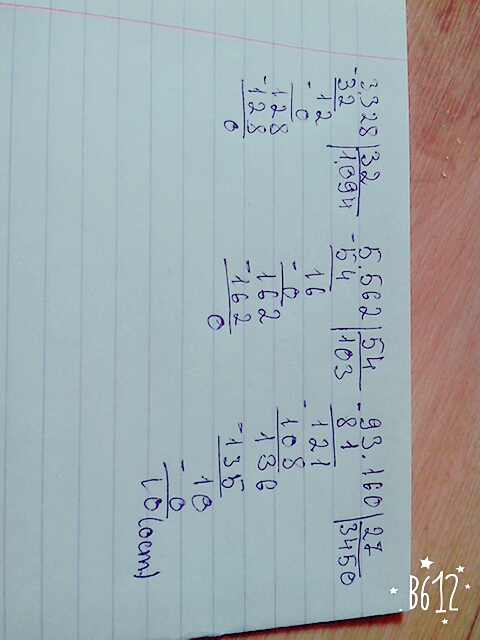 3.328 | 32
- 32 | 1.094
12
- 0
128
- 128
0
5.562 | 54
- 54 | 103
16
- 0
162
- 162
0
93.160 | 27
- 81 | 3450
121
- 108
136
- 135
10
- 0
10 (ост)
B612